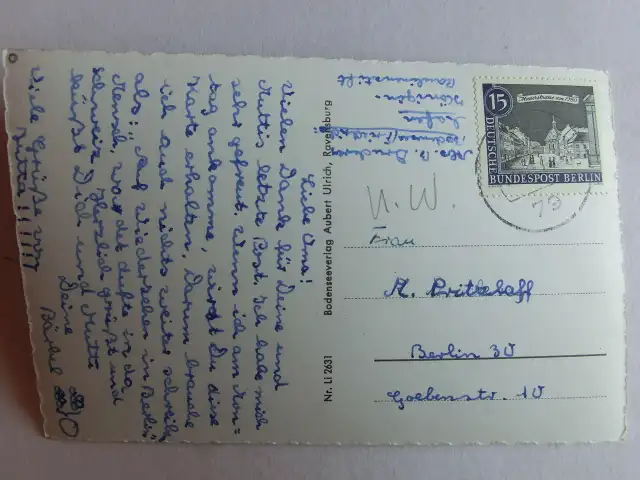 Liebe Oma!
Vielen Dank für Deine und
Muttis letzte Post. Ich habe mich
sehr gefreut. Wenn ich am Mon=
tag ankomme, wirst Du diese
Karte erhalten. Darum brauche
ich auch nichts weiter schreiben,
als: „Auf Wiedersehen in Berlin"
Mensch war das dufte in der
Schweiz. Herzlich grüßt und
küßt Dich und Mutti
Deine
Bärbel
Viele Grüße von
Jutta!!!!!!
Nr. LI 2631 Bodenseeverlag Aubert Ulrich, Ravensburg
15
DEUTSCHE
BUNDESPOST BERLIN
79
N.W.
Frau
A. Prittkaff
Berlin 30
Goebenstr. 10